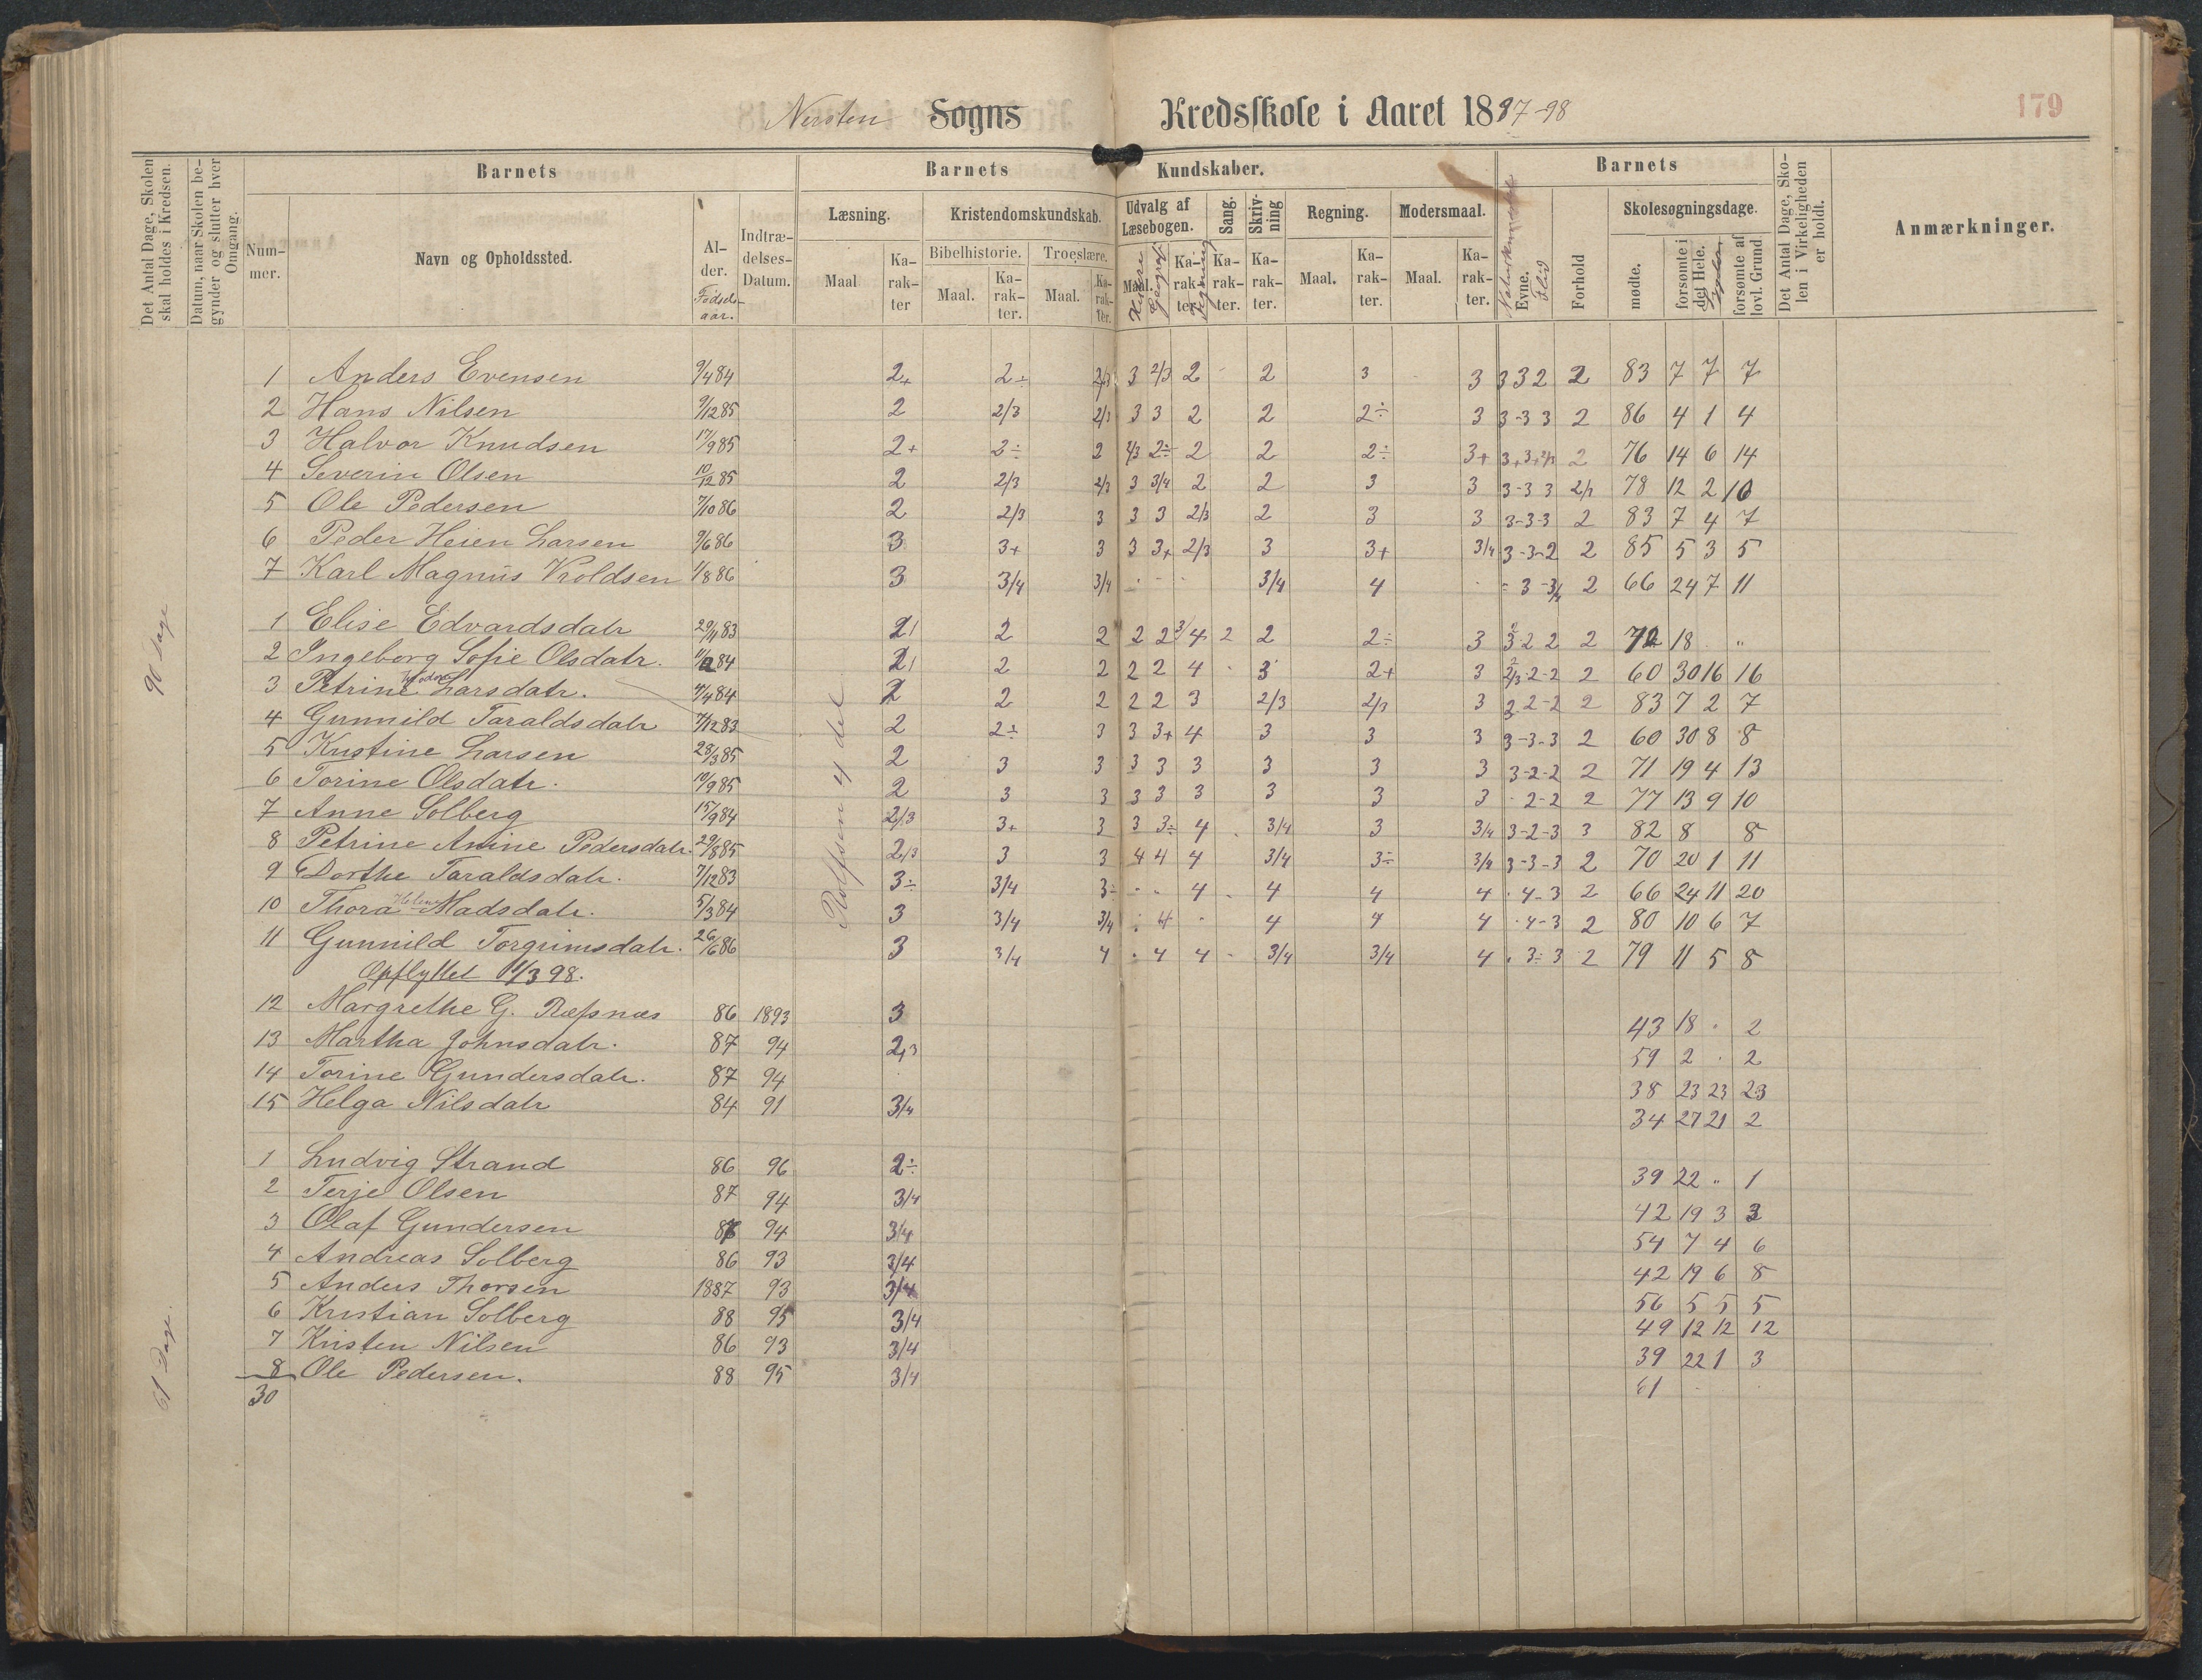 Nersten Sogns Kredsskole i Aaret 1897-98
179
Det Antal Dage, Skolen skal holdes i Kredsen.
Datum, naar Skolen begynder og slutter hver Omgang.
Barnets
Nummer.
Navn og Opholdssted.
Alder.
Fødselsaar.
Indtrædelses-Datum.
Barnets Kundskaber.
Læsning.
Maal
Karakter
Kristendomskundskab.
Bibelhistorie.
Maal.
Karakter.
Troeslære.
Maal.
Karakter.
Udvalg af Læsebogen.
Maal.
Historie
Geografi
Karakter.
Tegning
Sang.
Karakter.
Skrivning
Karakter.
Regning.
Maal.
Karakter.
Modersmaal.
Maal.
Karakter.
Barnets
Evne.
Flid
Forhold
Skolesøgningsdage.
mødte.
forsømte i det Hele.
forsømte af lovl. Grund.
Det Antal Dage, Skolen i Virkeligheden er holdt.
Anmærkninger.
90 dage
Rolfsen 4 del
1 Anders Evensen 9/4 84 2+ 2÷ 2/3 3 2/3 2 - 2 3 3 3 3 2 2 83 7 7 7
2 Hans Nilsen 9/12 85 2 2/3 2/3 3 3 2 2 2÷ 3 3-3 3 2 86 4 1 4
3 Halvor Knudsen 17/9 85 2+ 2÷ 2 2/3 2÷ 2 2 2÷ 3+ 2 76 14 6 14
4 Severin Olsen 10/12 85 2 2/3 2/3 3 3/4 2 2 3 3 3-3 3 78 12 2 10
5 Ole Pedersen 7/10 86 2 2/3 3 3 3 2/3 2 3 3 3-3-3 2 83 7 4 7
6 Peder Heien Larsen 9/6 86 3 3+ 3 3 3+ 2/3 3 3+ 3/4 3-3-2 2 85 5 3 5
7 Karl Magnus Vroldsen 1/8 86 3 3/4 3/4 3/4 4 3-3/4 2 66 24 7 11
1 Elise Edvardsdatr 29/11 83 2 2 2 2 2 3/4 2 2 2÷ 3 3 2 2 2 72 18 "
2 Ingeborg Sofie Olsdatr. 84 2 2 2 2 2 4 3 2+ 3 2/3-2-2 2 60 30 16 16
3 Petrine Larsdatr. 4/4 84 2 2 2 2 2 3 2/3 2/3 3 3 2-2 2 83 7 2 7
4 Gunnild Taraldsdatr 7/12 83 2 2÷ 3 3 3+ 4 3 3 3 3-3-3 2 60 30 8 8
5 Kristine Larsen 28/3 85 2 3 3 3 3 3 3 3 3 3-2-2 2 71 19 4 13
6 Torine Olsdatr. 10/9 85 2 3 3 3 3 3 3 3 3 - 2-2 2 77 13 9 10
7 Anne Solberg 15/9 84 2/3 3+ 3 3 3÷ 4 3/4 3 3/4 3-2-3 3 82 8 8
8 Petrine Anine Pedersdatr. 29/8 85 2/3 3 3 4 4 4 3/4 3÷ 3/4 3-3-3 2 70 20 1 11
9 Dorthe Taraldsdatr. 7/12 83 3÷ 3/4 3÷ 4 4 4 4 4-3 2 66 24 11 20
10 Thora Helene Madsdatr. 5/3 84 3 3/4 3/4 4 4 4 4 4-3 2 80 10 6 7
11 Gunnild Torgrimsdatr. 26/6 86 3 3/4 4 4 4 3/4 3/4 4 3÷3 2 79 11 5 8
Opflyttet 11/3 98.
12 Margrethe G. Ræfsnæs 86 1893 3 43 18 2
13 Martha Johnsdatr. 87 94 2/3 59 2 2
14 Torine Gundersdatr. 87 94 38 23 23 23
15 Helga Nilsdatr 84 91 3/4 34 27 21 2
61 Dage.
1 Ludvig Strand 86 96 2÷ 39 22 " 1
2 Terje Olsen 87 94 3/4 42 19 3 3
3 Olaf Gundersen 94 3/4 54 7 4 6
4 Andreas Solberg 86 93 3/4 42 19 6 8
5 Anders Thorsen 1887 93 3/4 56 5 5 5
6 Kristian Solberg 88 95 3/4 49 12 12 12
7 Kristen Nilsen 86 93 3/4 39 22 1 3
8 Ole Pedersen. 88 95 3/4 61
30